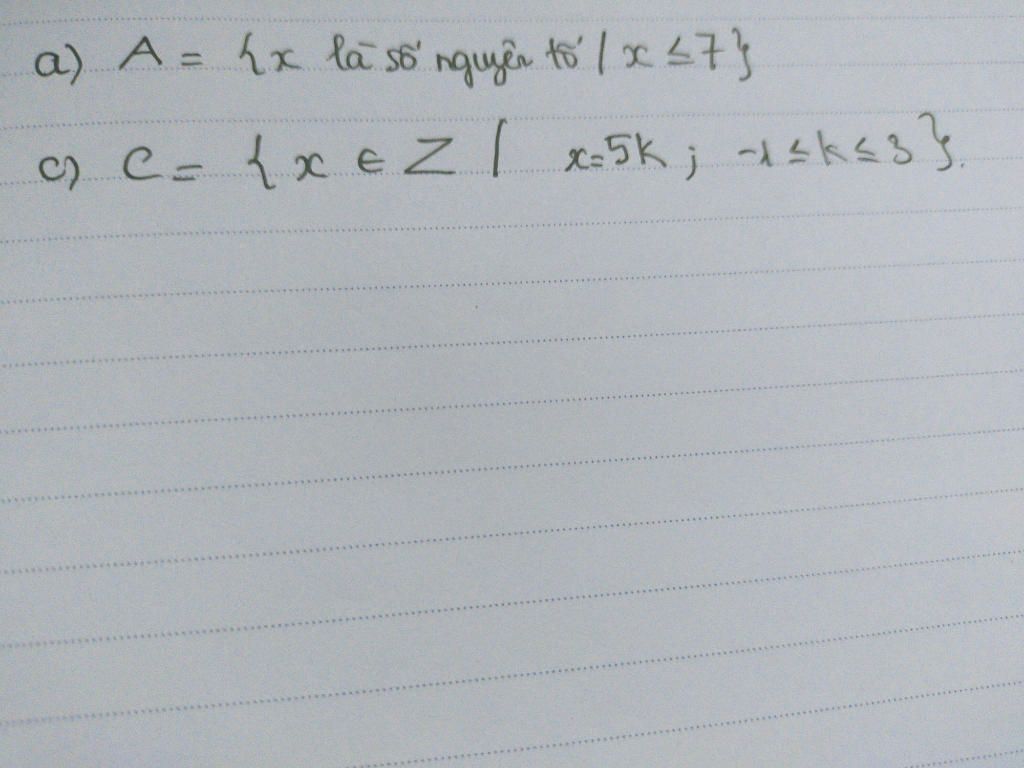 a) A = {x là số nguyên tố | x ≤ 7}
c) C = {x ∈ Z | x=5k ; -1 ≤ k ≤ 3}.